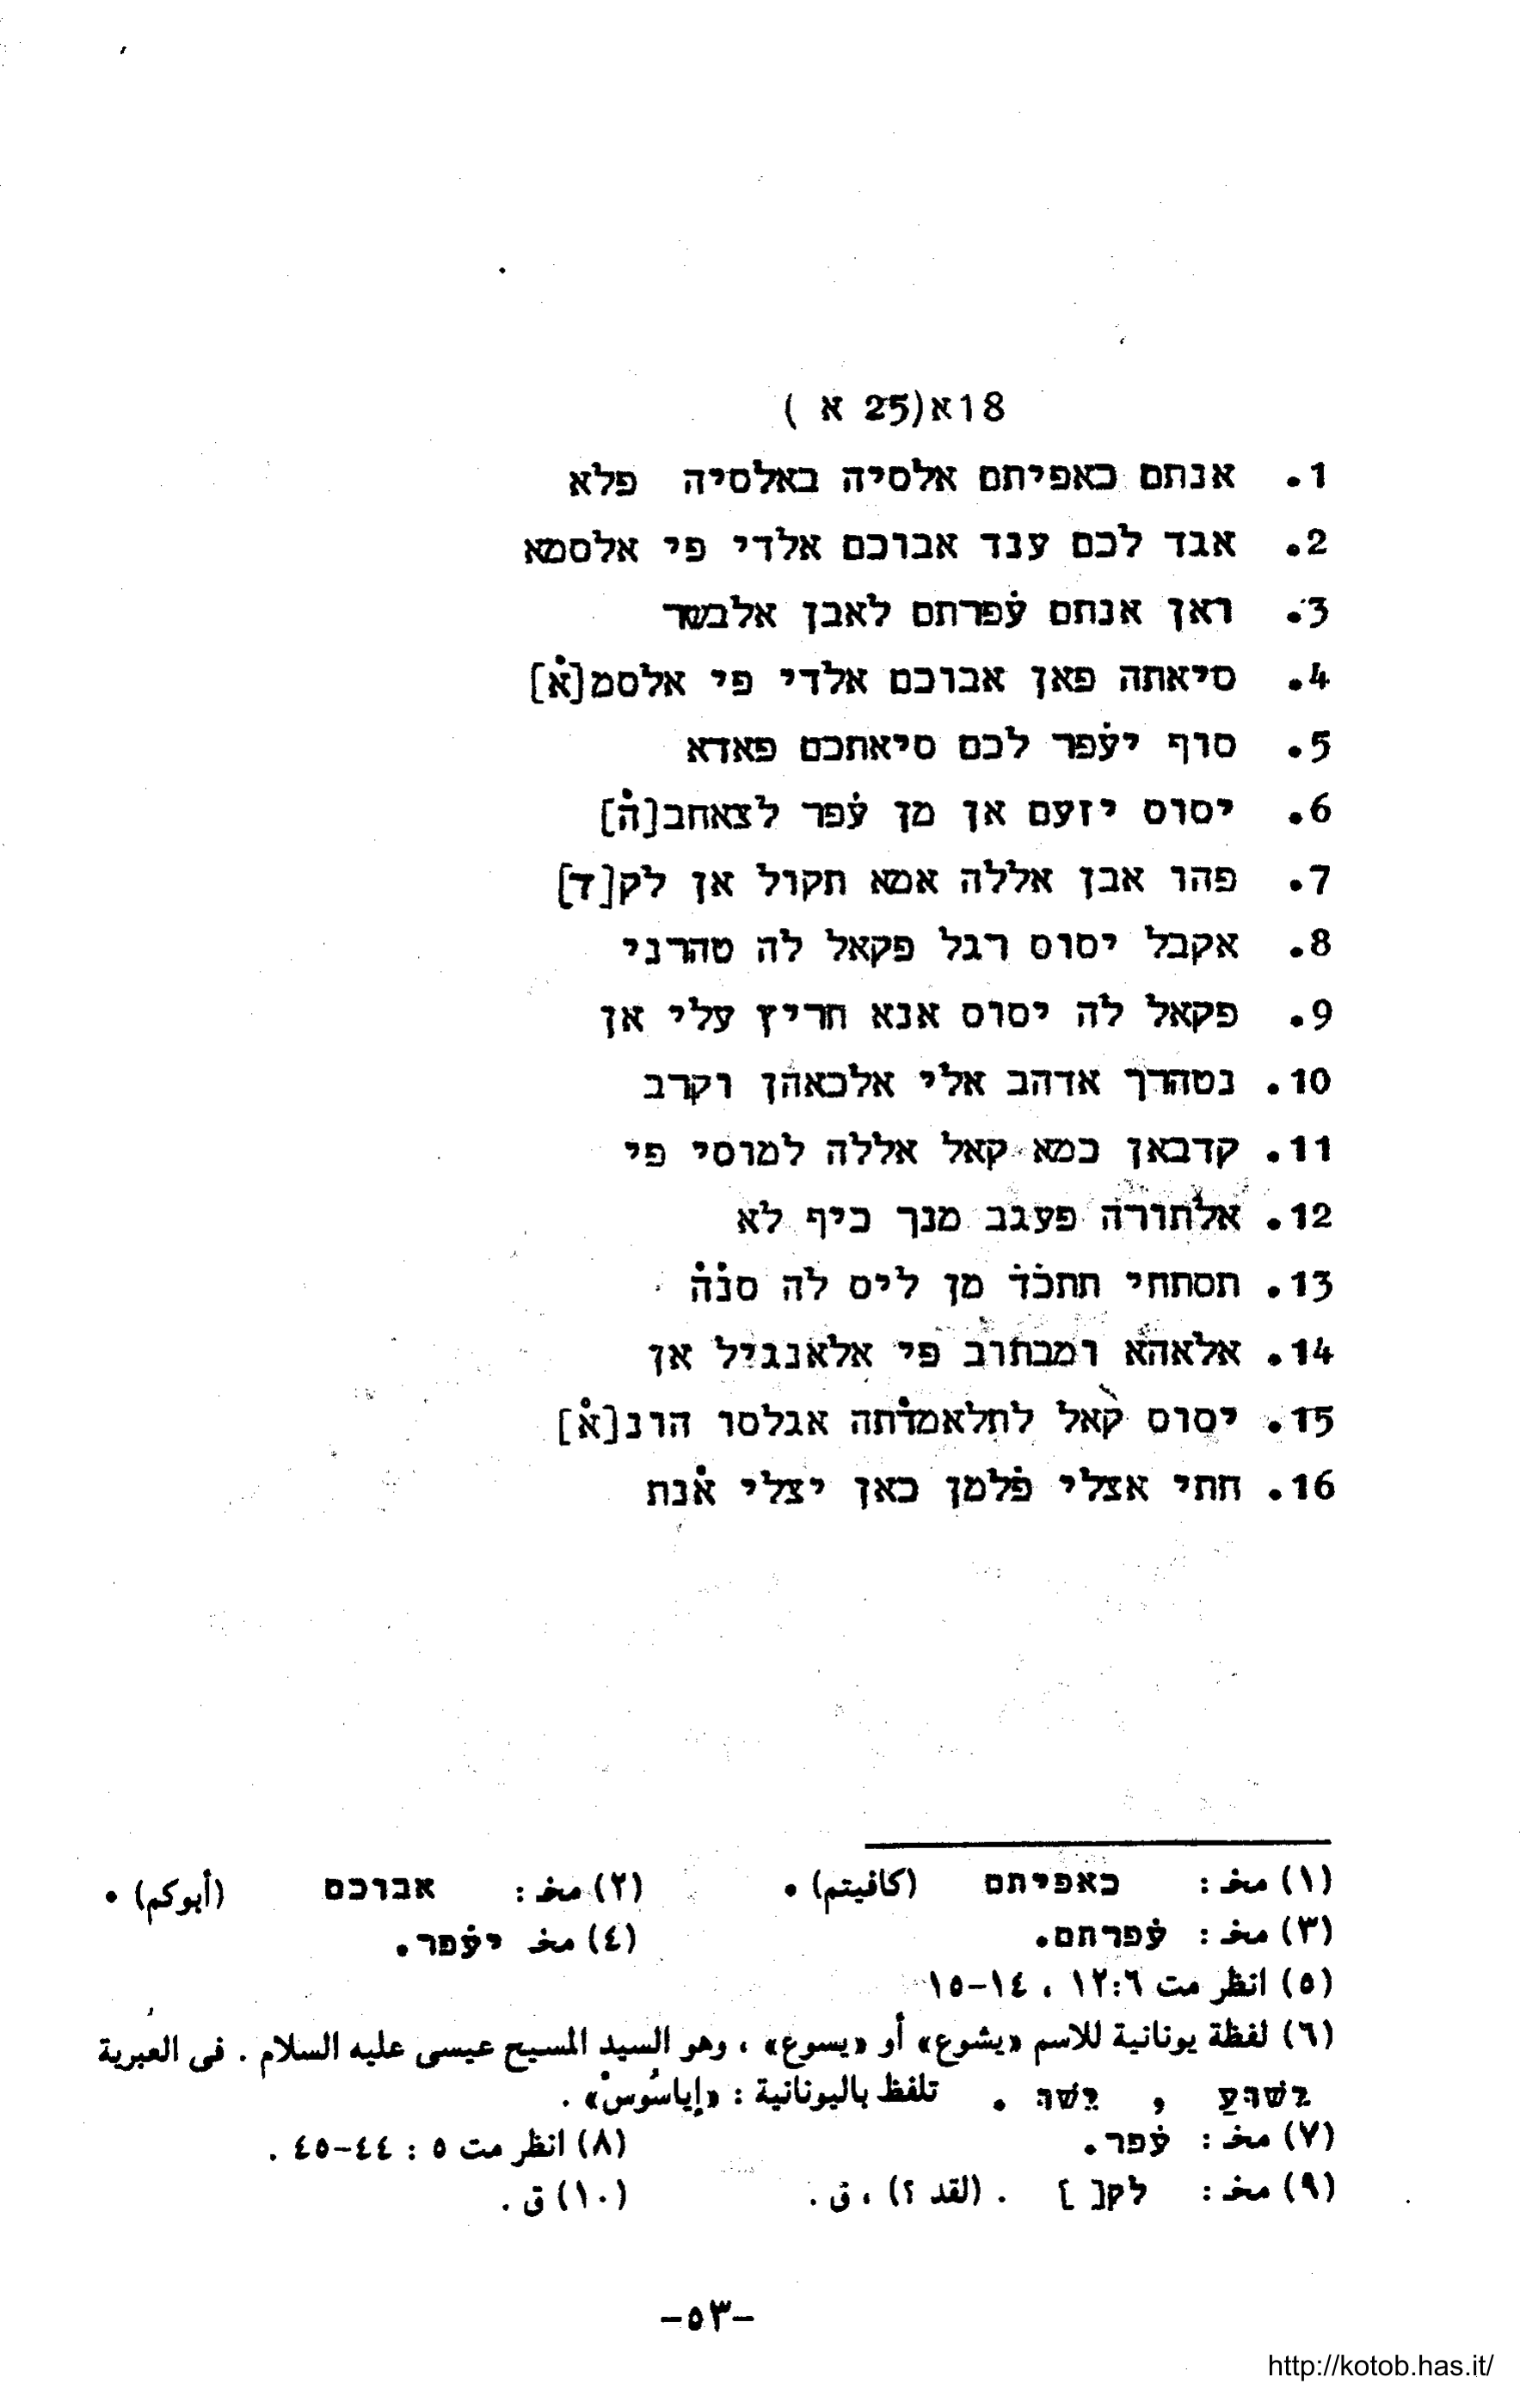 18א(25 א )
1. אנתם כאפיתם אלסיה באלסיה פלא
2. אגד לכם ענד אבוכם אלדי פי אלסמא
3. ואן אנתם עׄפרתם לאבן אלבשר
4. סיאתה פאן אבוכם אלדי פי אלסמ[א̊]
5. סוף יעׄפר לכם סיאתכם פאדא
6. יסוס יזעם אן מן עׄפר לצאחב[ה̊]
7. פהו אבן אללה אמא תקול אן לק[ד]
8. אקבל יסוס רגל פקאל לה טהרני
9. פקאל לה יסוס אנא חריץ עלי אן
10. נטהרך אדהב אלי אלכאהן וקרב
11. קרבאן כמא קאל אללה למוסי פי
12. אלתורה פעגב מנך כיף לא
13. תסתחי תתכׄדׄ מן ליס לה סנ̊ה̊
14. אלאהא ומכתוב פי אלאנגיל אן
15. יסוס קאל לתלאמד̊תה אגלסו הונ[א̊]
16. חתי אצלי פׄלמן כאן יצלי א̊נת
(١) مخـ : כאפיתם (كافيتم) . (٢) مخـ : אבוכם (أبوكم) .
(٣) مخـ : עׄפרתם. (٤) مخـ יעׄפר.
(٥) انظر مت ١٢:٦ ، ١٤-١٥
(٦) لفظة يونانية للاسم «يشوع» أو «يسوع» ، وهو السيد المسيح عيسى عليه السلام . فى العبرية
יֵשׁוּעַ , יֵשׁוּ . تلفظ باليونانية : «إياسُوسْ» .
(٧) مخـ : עׄפר. (٨) انظر مت ٥ : ٤٤-٤٥ .
(٩) مخـ : לק[ ] . (لقد ؟) ، ق . (١٠) ق .
-٥٣-
http://kotob.has.it/